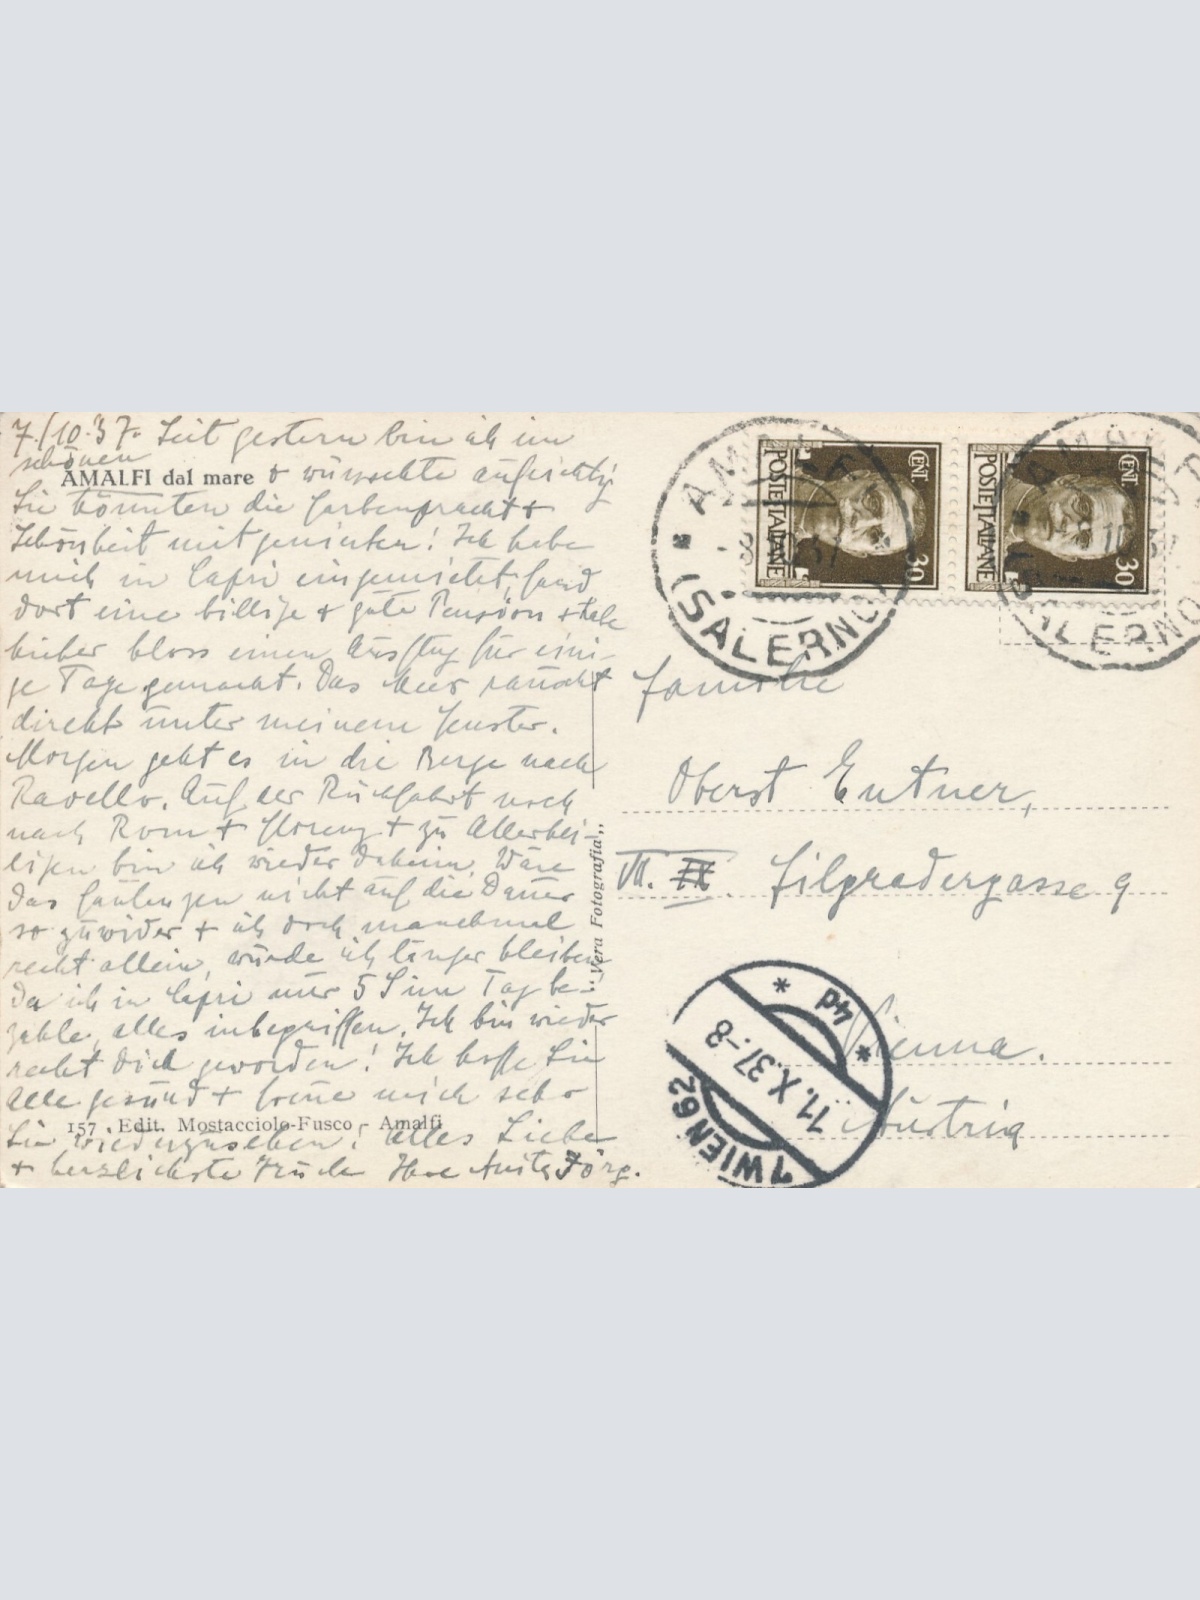 7./10.37. Seit gestern bin ich im
schönen
AMALFI dal mare + wünschte aufrichtig
Sie könnten die Farbenpracht +
Schönheit mitgeniessen! Ich habe
mich in Capri eingemietet, fand
dort eine billige + gute Pension + habe
hieher bloss einen Ausflug für eini-
ge Tage gemacht. Das Meer rauscht
direkt unter meinem Fenster.
Morgen geht es in die Berge nach
Ravello. Auf der Rückfahrt noch
nach Rom + Florenz + zu Allerhei-
ligen bin ich wieder daheim. Wäre
das Faulenzen nicht auf die Dauer
so zuwider + ich doch manchmal
recht allein, würde ich länger bleiben
da ich in Capri nur 5 S im Tag be-
zahle, alles inbegriffen. Ich bin wieder
recht dick geworden! Ich hoffe Sie
alle gesund + freue mich sehr
157 Edit. Mostacciolo-Fusco Amalfi
Sie wiederzusehen! Alles Liebe
+ herzlichste Grüsse Ihre Anita Jörg.
"Vera Fotografia"
AMALFI
(SALERNO)
POSTE ITALIANE
CENT. 30
POSTE ITALIANE
CENT. 30
AMALFI
(SALERNO)
Familie
Oberst Entner,
VII. Filgradergasse 9
Vienna.
Austria
1 WIEN 62
11.X.37.-8
* 4d *